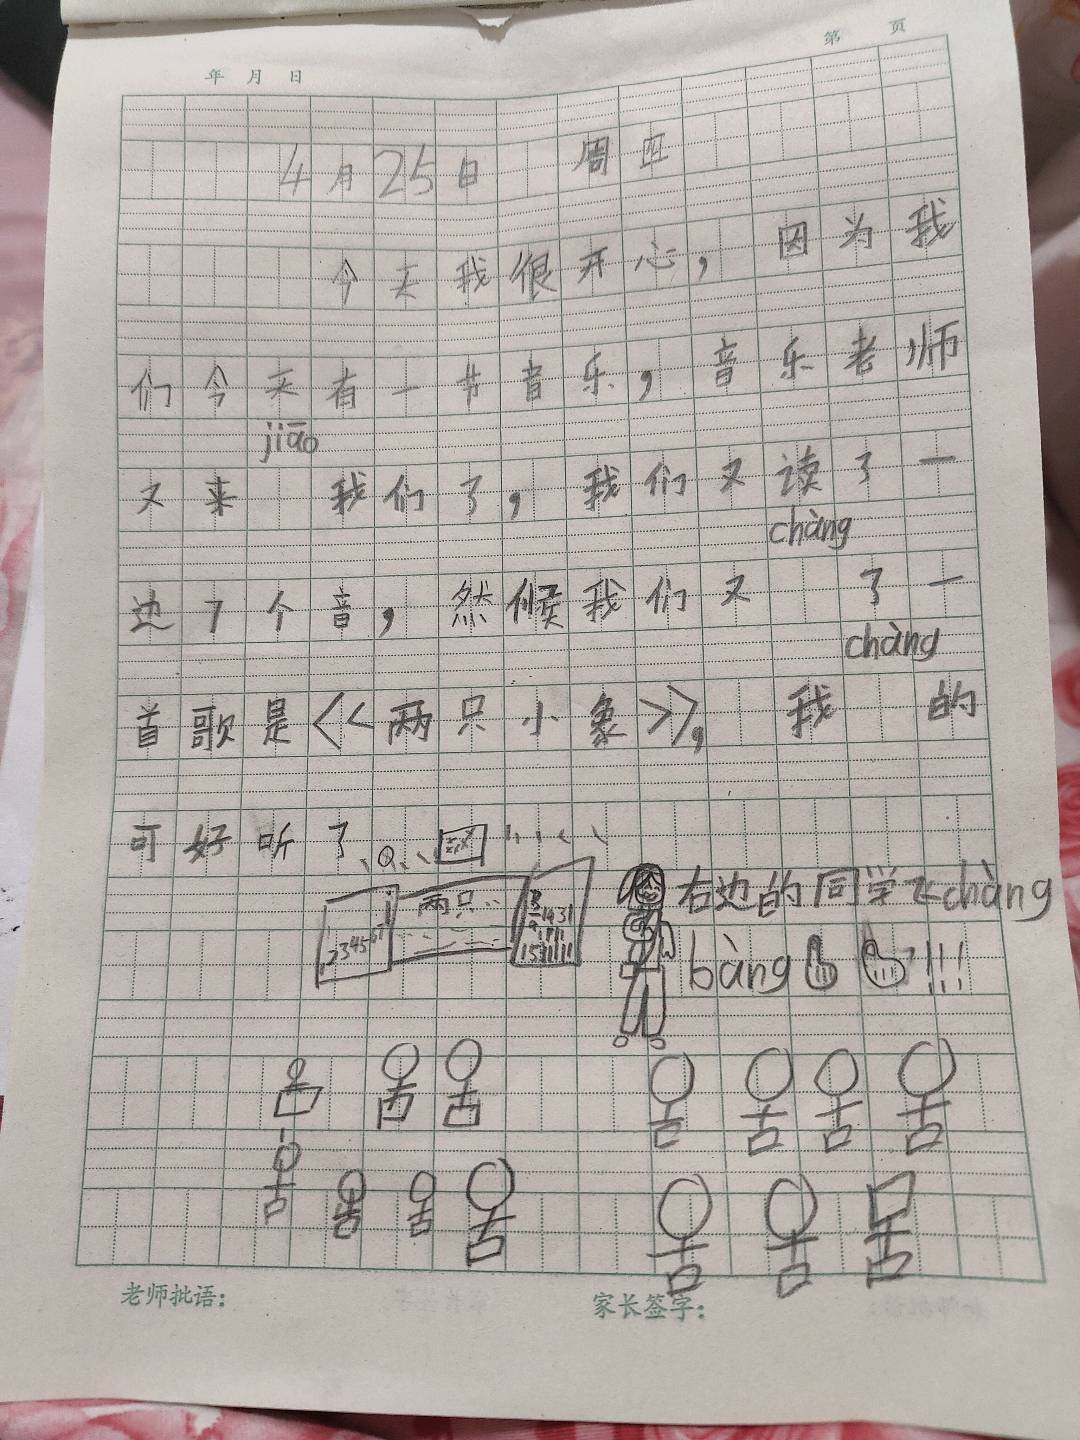 第 页
年 月 日
4月25日 周四
今天我很开心,因为我
们今天有一节音乐,音乐老师
jiāo
又来 我们了,我们又读了一
chàng
边7个音,然候我们又 了一
chàng
首歌是<<两只小象>>,我 的
可好听了
两只
1234567
右边的同学太chàng
bàng !!!
老师批语:
家长签字: